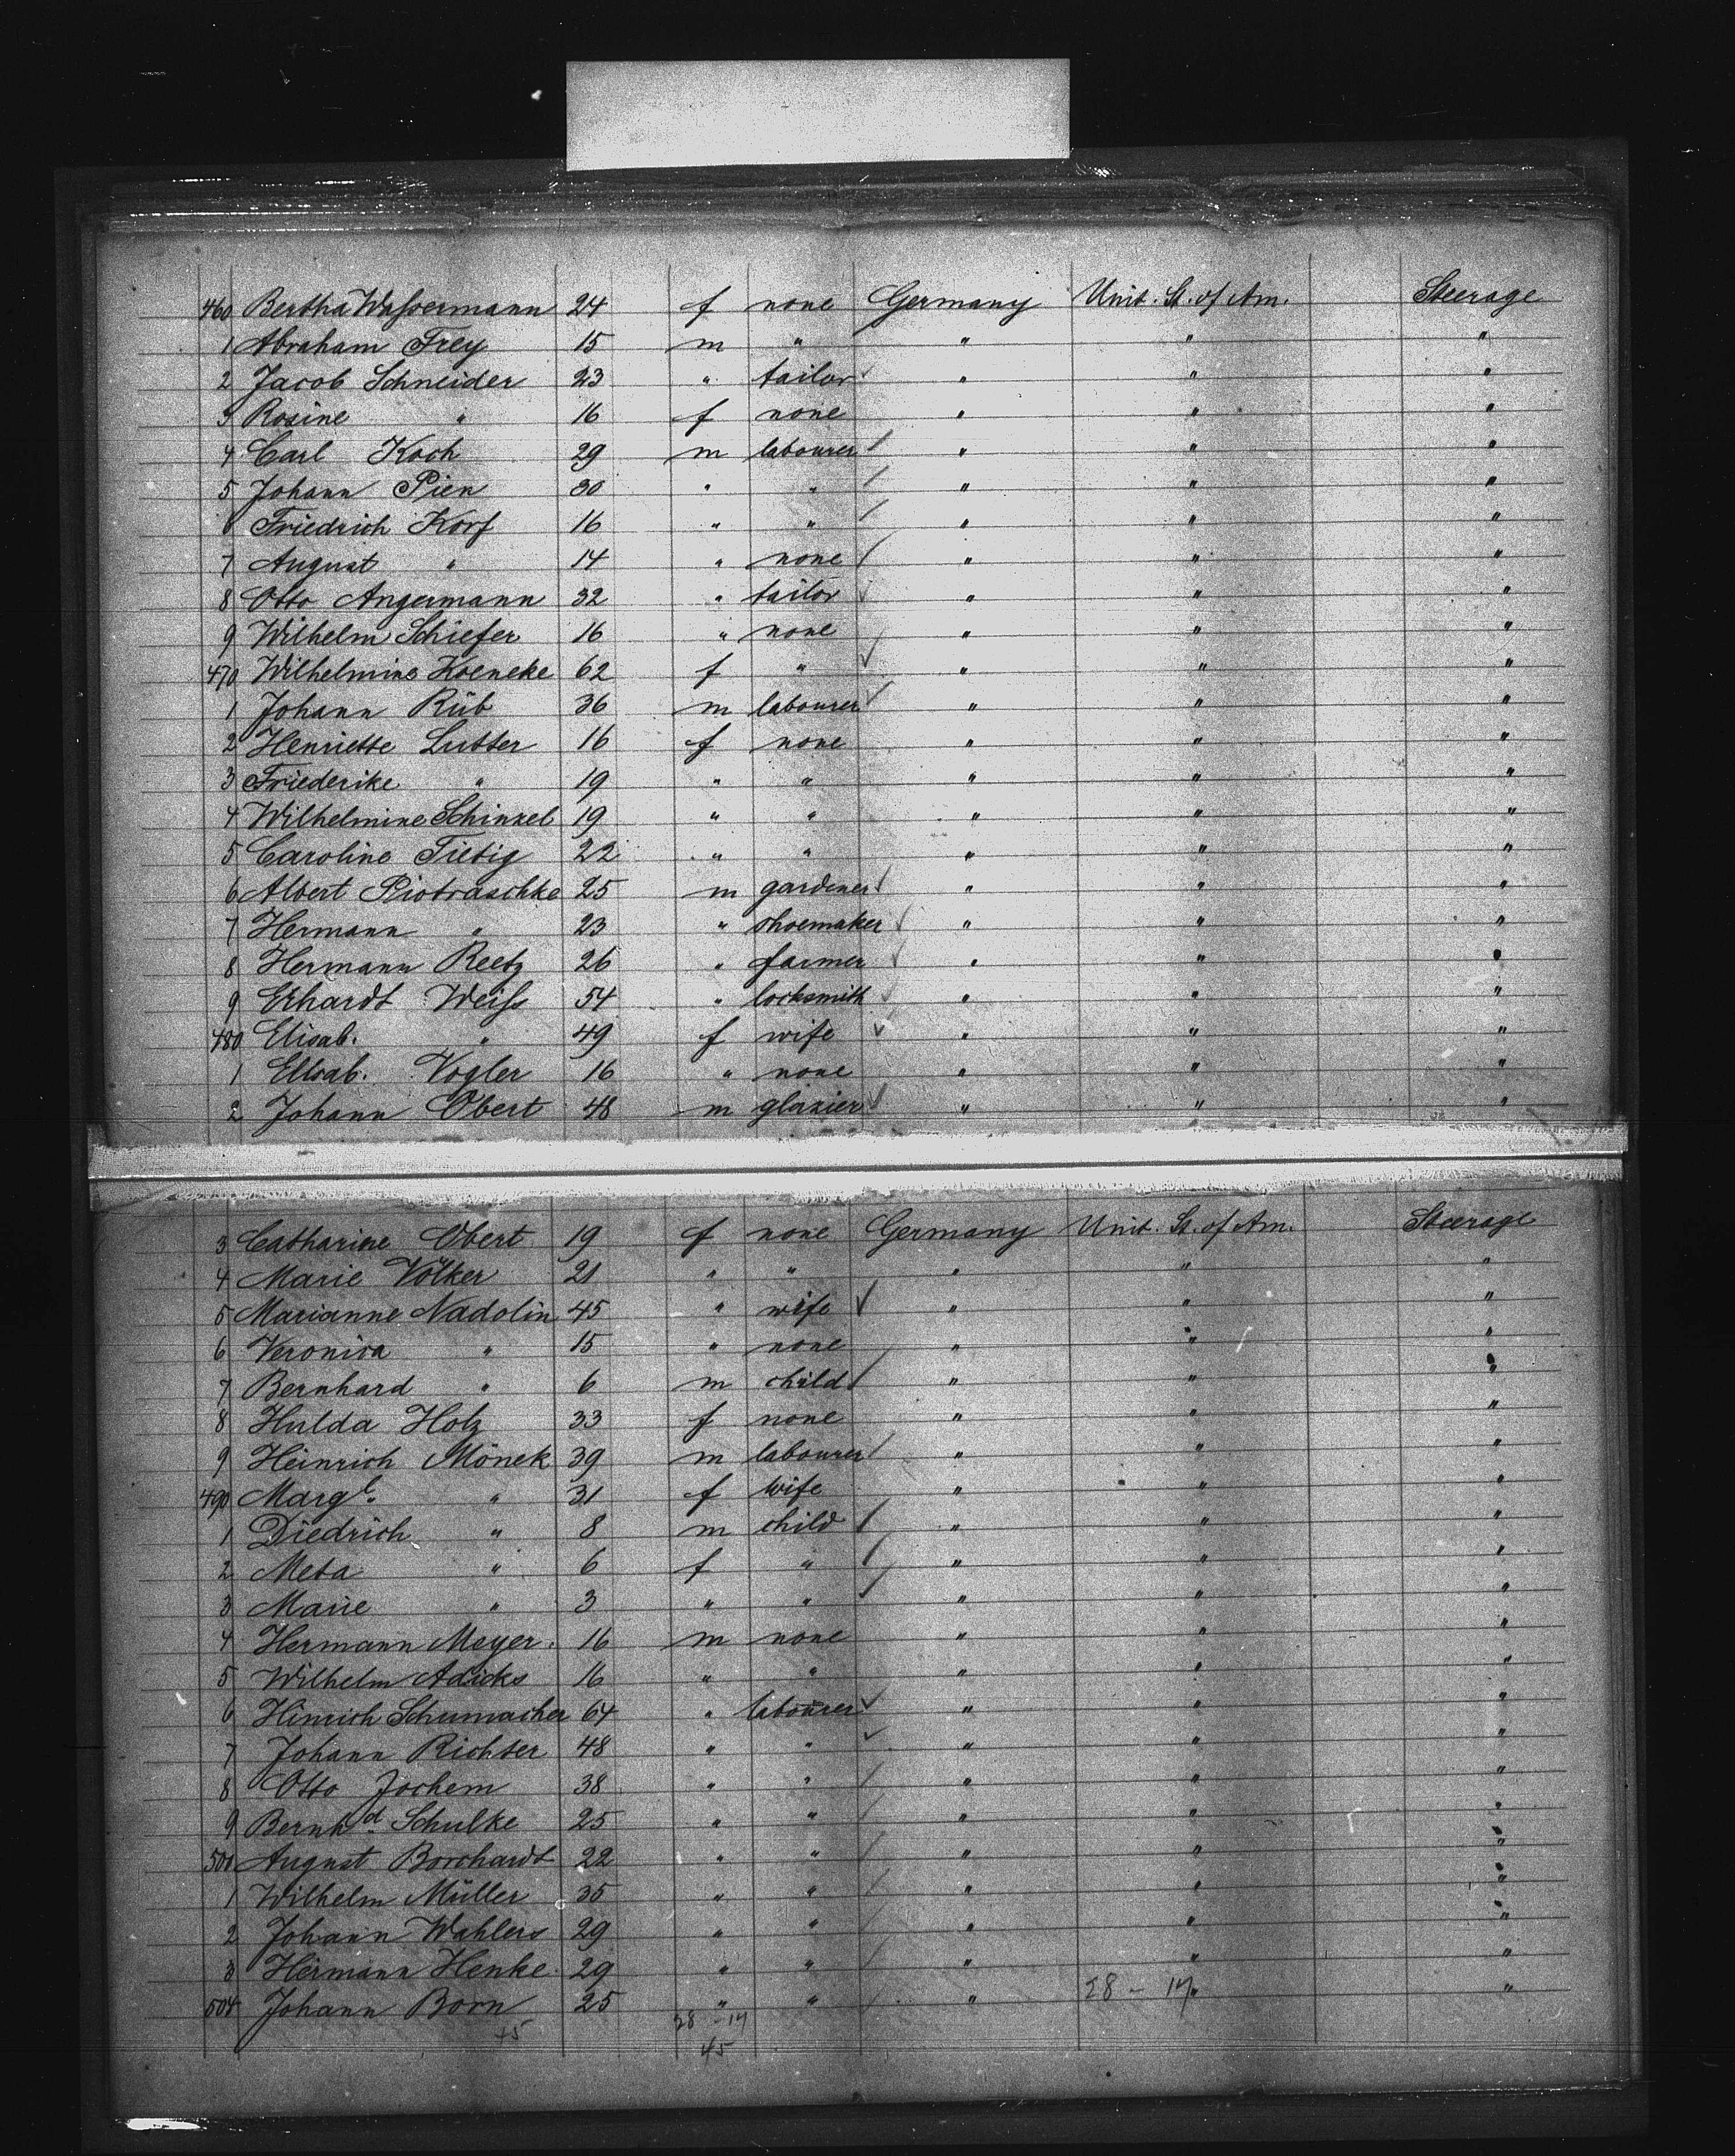 460 Bertha Waſsermann 24 f none Germany Unit. St. of Am. Steerage
1 Abraham Frey 15 m " " " "
2 Jacob Schneider 23 " tailor " " "
3 Rosine " 16 f none " " "
4 Carl Koch 29 m labourer " " "
5 Johann Pien 30 " " " " "
6 Friedrich Korf 16 " " " " "
7 August " 14 " none " " "
8 Otto Angermann 32 " tailor " " "
9 Wilhelm Schiefer 16 " none " " "
470 Wilhelmine Koeneke 62 f " " " "
1 Johann Rüb 36 m labourer " " "
2 Henriette Lutter 16 f none " " "
3 Friederike " 19 " " " " "
4 Wilhelmine Schinzel 19 " " " " "
5 Caroline Tietig 22 " " " " "
6 Albert Piotraschke 25 m gardener " " "
7 Hermann " 23 " shoemaker " " "
8 Hermann Reetz 26 " farmer " " "
9 Erhardt Weiſs 54 " locksmith " " "
480 Elisab. " 49 f wife " " "
1 Elisab. Vogler 16 " none " " "
2 Johann Obert 48 m glazier " " "
3 Catharine Obert 19 f none Germany Unit. St. of Am. Steerage
4 Marie Völker 21 " " " " "
5 Marianne Nadolin 45 " wife " " "
6 Veronica " 15 " none " " "
7 Bernhard " 6 m child " " "
8 Hulda Holz 33 f none " " "
9 Heinrich Mönek 39 m labourer " " "
490 Marg. " 31 f wife " " "
1 Diedrich " 8 m child " " "
2 Meta " 6 f " " " "
3 Marie " 3 " " " " "
4 Hermann Meyer. 16 m none " " "
5 Wilhelm Adicks 16 " " " " "
6 Hinrich Schumacher 64 " labourer " " "
7 Johann Richter 48 " " " " "
8 Otto Jochem 38 " " " " "
9 Bernhd Schulke 25 " " " " "
500 August Borchardt 22 " " " " "
1 Wilhelm Müller 35 " " " " "
2 Johann Wahlers 29 " " " " "
3 Hermann Henke 29 " " " " "
504 Johann Born 25 " " " 28 - 17 " "
45 28 - 17
45